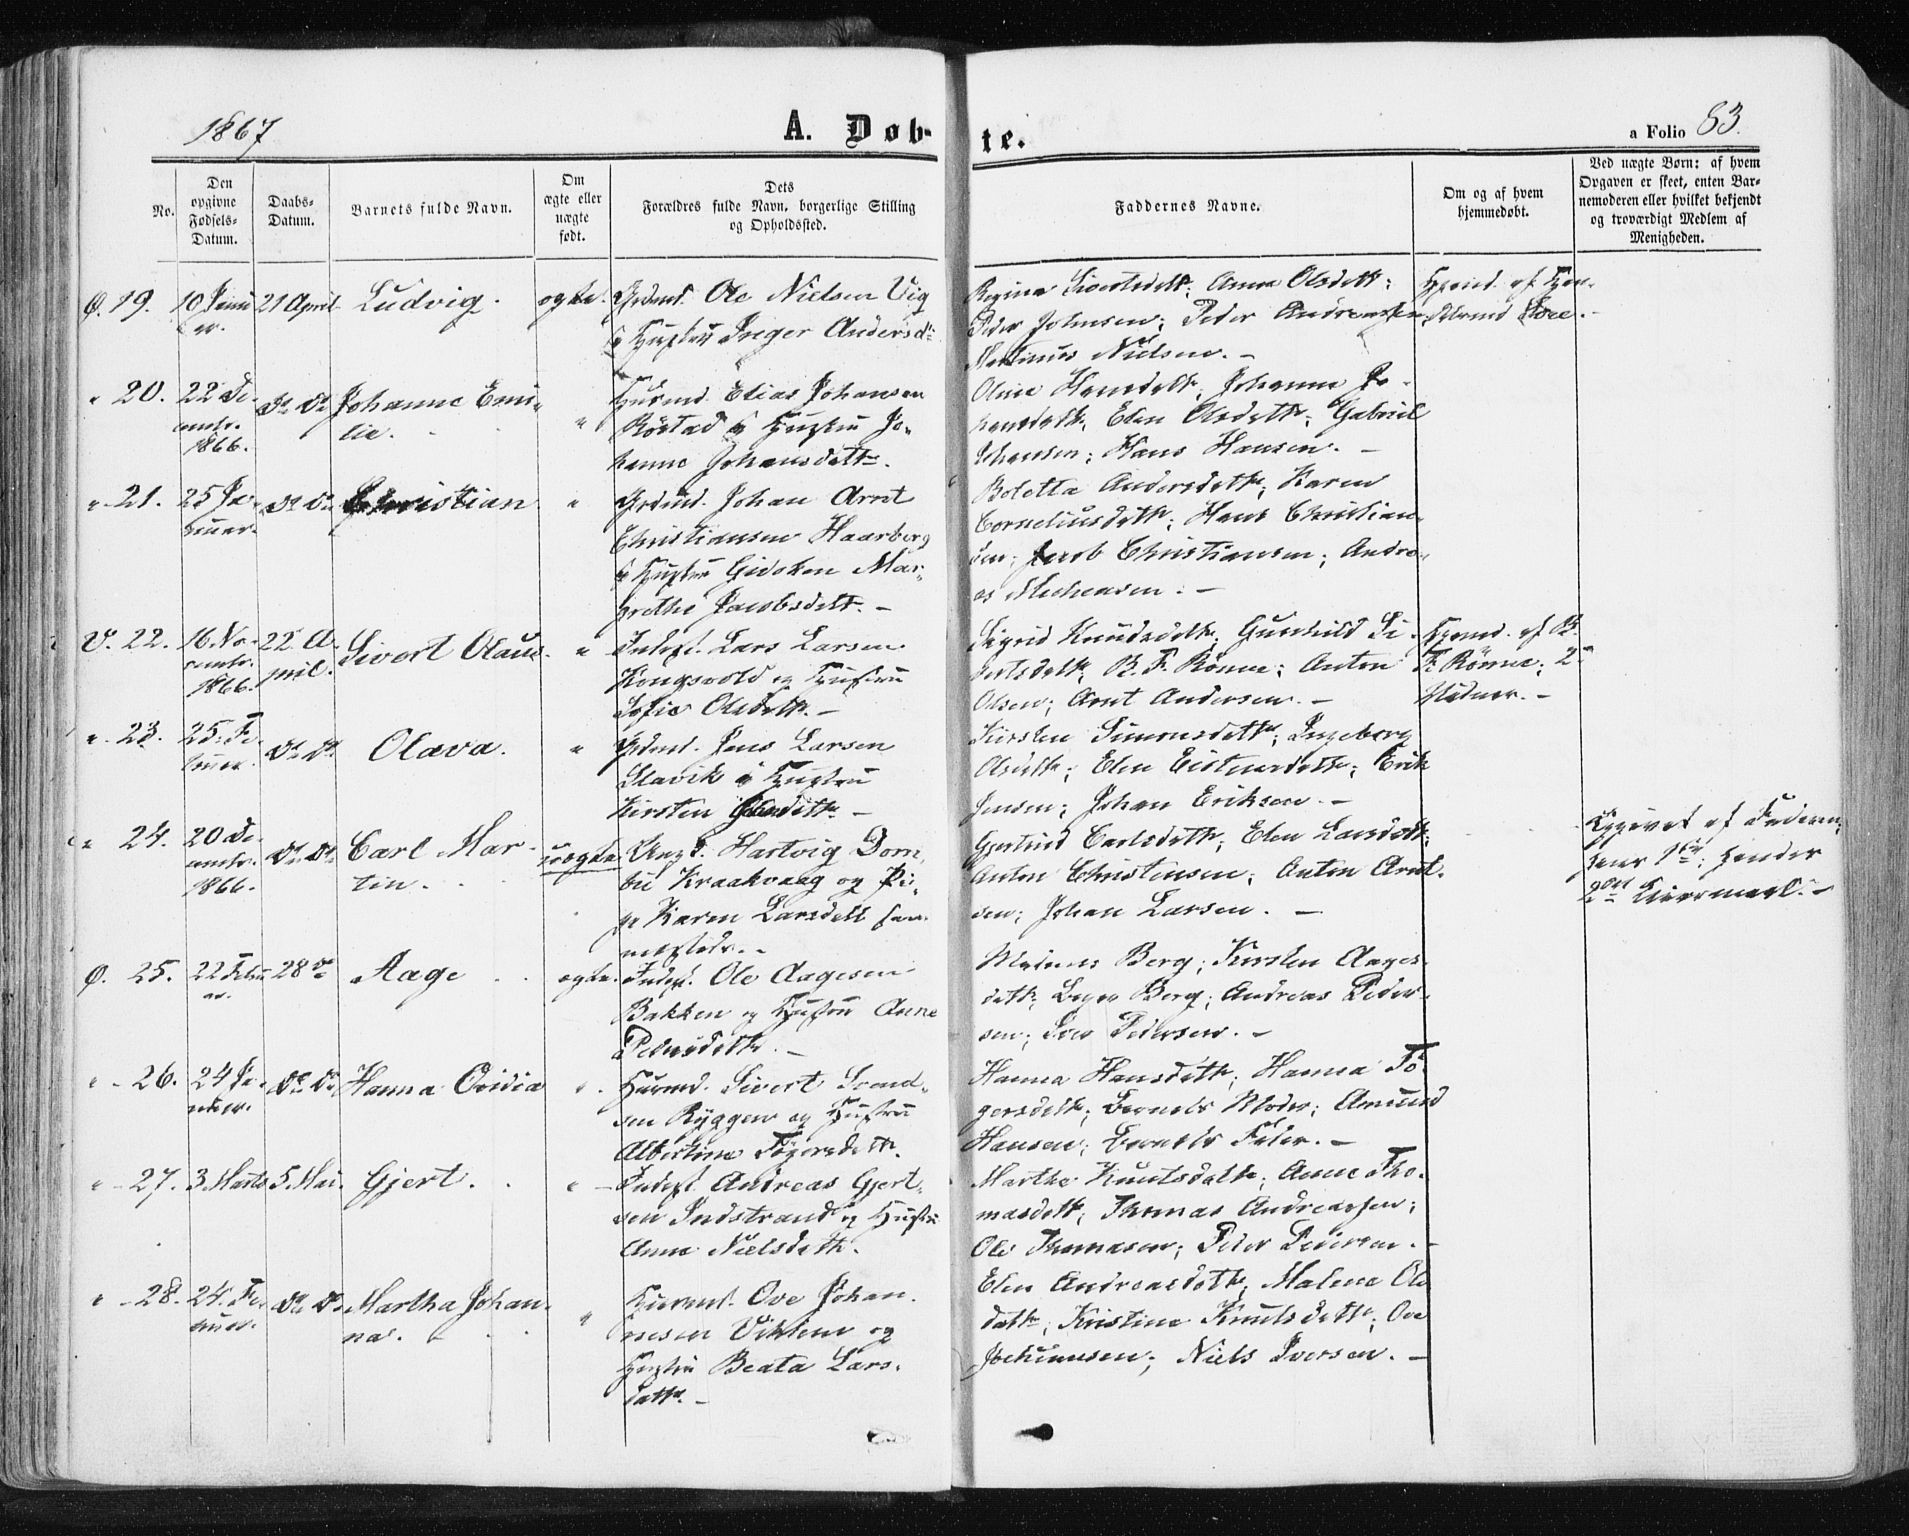 1867
A. Døb-
te.
a Folio 83.
No.
Den
opgivne
Fødsels-
Datum.
Daabs-
Datum.
Barnets fulde Navn.
Om
ægte eller
uægte
født.
Dets
Forældres fulde Navn, borgerlige Stilling
og Opholdssted.
Faddernes Navne.
Om og af hvem
hjemmedøbt.
Ved uægte Børn: af hvem
Opgaven er skeet, enten Bar-
nemoderen eller hvilket bekjendt
og troværdigt Medlem af
Menigheden.
Ø. 19. 10 Janu 21 April Ludvig. ægte. Grdmd. Ole Nielsen Vig
ar. og Hustru Inger Andersd.
Regine Sivertsdtt; Anna Olsdtt;
Peder Johnsen; Peder Andreassen
Martinus Nielsen. -
Hjemd. af
" 20. 22 De- do do Johanne Emi- " Husmd. Elias Johansen
cembr. lie. Røstad og Hustru Jo-
1866. hanne Johansdatt.
Oline Hansdatt; Johanna Jo-
hansdatt; Elen Olsdatt; Gabriel
Johansen; Hans Hansen. -
" 21. 25 Ja- do do Christian " Grdmd. Johan Arnt
nuar. Christiansen Haarberg
og Hustru Gidsken Mar-
grethe Jacobsdatt. -
Boletta Andersdatt; Karen
Corneliusdatt; Hans Christian-
sen; Jacob Christiansen; Andre-
as Mechensen. -
V. 22. 16 No- 22 A- Sivert Olaus. " Inderst. Lars Larsen
vembr. pril. Kongsvold og Hustru
1866. Sofie Olsdatt. -
Sigrid Knudsdatt; Gunhild Si-
vertsdatt; B. F. Rønne; Anton
Olsen; Arnt Andersen. -
Hjemd. af B.
F. Rønne; 2
Vidner. -
" 23. 25. Fe- do do Olava. " Grdmd. Jens Larsen
bruar. Slavik og Hustru
Kirsten Olsdatt. -
Kirsten Simonsdatt; Ingeborg
Olsdatt; Elen Eistensdatt; Erik
Jensen; Johan Eriksen. -
" 24. 20 De- do do Carl Mar- uægte Ungk. Hartvig
cembr. tin. Kraakvaag og Pi-
1866. ge Karen Larsdatt sam-
mesteds. -
Gjertrud Carlsdatt; Elen Larsdatt;
Anton Christensen; Anton Arnt-
sen; Johan Larsen. -
Opgivet af Faderen;
hans 1ste; hendes
2det Leiermaal. -
Ø. 25. 22 Febru 28 do Aage ægte. Inderst. Ole Aagesen
ar. Bakken og Hustru Anne
Pedersdatt. -
Berg; Kirsten Aages-
datt; Berg; Andreas Peder-
sen; Iver Pedersen. -
" 26. 24 Ja- do do Hanna Ovidia " Husmd. Sivert Svend-
nuar. sen Ryggen og Hustru
Albertine Tøgersdatt.
Hanna Hansdatt; Hanna Tø-
gersdatt; Barnets Moder; Amund
Hansen; Barnets Fader. -
" 27. 3 Marts 5. Mai. Gjert. " Inderst. Andreas Gjert-
sen Indstrand og Hustru
Anna Nielsdatt.
Martha Knutsdatt; Anne Tho-
masdatt; Thomas Andreassen;
Ole Thomasen; Peter Pedersen. -
" 28. 24. Fe- do do Martha Johan- " Husmd. Ove Johan-
bruar. na. nesen Viklem og
Hustru Beata Lars-
datt. -
Elen Andreasdatt; Malena Ols-
datt; Kristine Knutsdatt; Ove
Johannesen; Niels Iversen. -